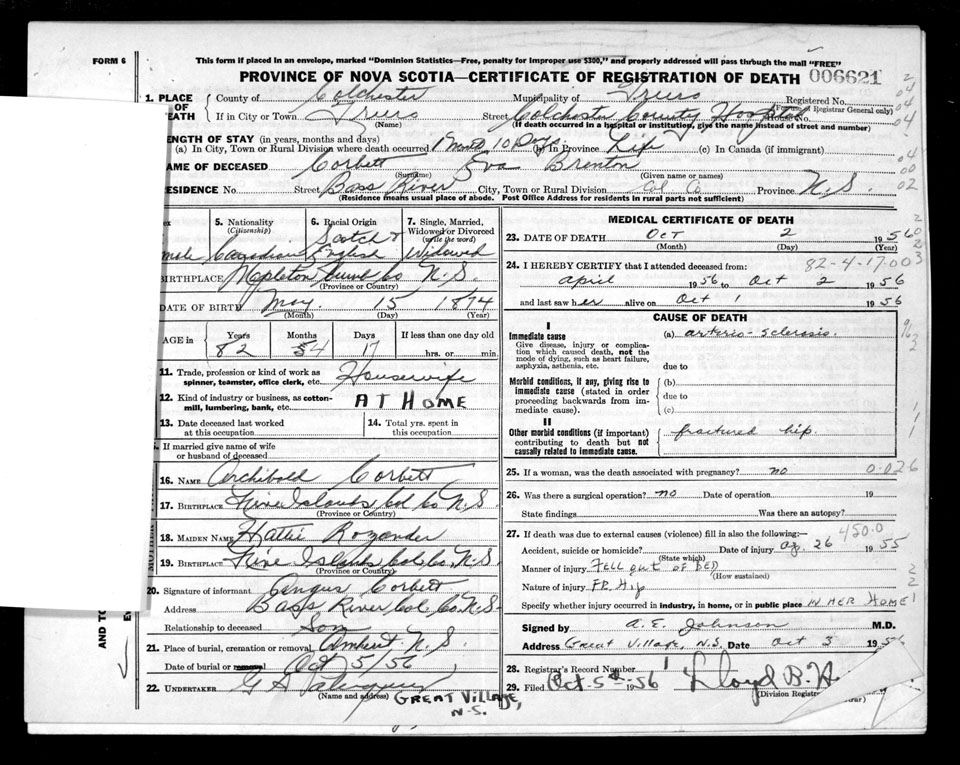 FORM 6
This form if placed in an envelope, marked "Dominion Statistics—Free, penalty for improper use $300," and properly addressed will pass through the mail "FREE"
PROVINCE OF NOVA SCOTIA—CERTIFICATE OF REGISTRATION OF DEATH 006621
1. PLACE OF DEATH County of Colchester Municipality of Truro Registered No.
If in City or Town Truro (Name) Street Colchester County Hospital House No. (For use of Registrar General only)
(If death occurred in a hospital or institution, give the name instead of street and number)
LENGTH OF STAY (in years, months and days)
(a) In City, Town or Rural Division where death occurred 1 Month 10 Days (b) In Province Life (c) In Canada (if immigrant)
NAME OF DECEASED Corbett Eva Brenton
(Surname) (Given name or names)
RESIDENCE No. Street Bass River City, Town or Rural Division Col. Co. Province N.S.
(Residence means usual place of abode. Post Office Address for residents in rural parts not sufficient)
5. Nationality (Citizenship) 6. Racial Origin 7. Single, Married, Widowed or Divorced (write the word)
Canadian Scotch & English Widowed
BIRTHPLACE Mapleton Cumb Co N.S.
(Province or Country)
DATE OF BIRTH May 15 1874
(Month) (Day) (Year)
AGE in Years Months Days If less than one day old
82 4 17 hrs. or min.
11. Trade, profession or kind of work as spinner, teamster, office clerk, etc. Housewife
12. Kind of industry or business, as cotton-mill, lumbering, bank, etc. AT HOME
13. Date deceased last worked at this occupation 14. Total yrs. spent in this occupation
If married give name of wife or husband of deceased
16. NAME Archibald Corbett
17. BIRTHPLACE Five Islands Col Co N.S
(Province or Country)
18. MAIDEN NAME Hattie
19. BIRTHPLACE Five Islands Col. Co. N.S
(Province or Country)
20. Signature of informant Angus Corbett
Address Bass River Col. Co. N.S.
Relationship to deceased Son
21. Place of burial, cremation or removal Amherst N.S
Date of burial or removal Oct 5/56
22. UNDERTAKER
(Name and address) GREAT VILLAGE, N.S.
MEDICAL CERTIFICATE OF DEATH
23. DATE OF DEATH Oct 2 1956
(Month) (Day) (Year)
24. I HEREBY CERTIFY that I attended deceased from: 82-4-17.00
April 1956 to Oct 2 1956
and last saw her alive on Oct 1 1956
CAUSE OF DEATH
I
Immediate cause (a) arterio-sclerosis
Give disease, injury or complication which caused death, not the mode of dying, such as heart failure, asphyxia, asthenia, etc. due to
Morbid conditions, if any, giving rise to immediate cause (stated in order proceeding backwards from immediate cause). (b)
due to
(c)
II
Other morbid conditions (if important) contributing to death but not causally related to immediate cause. fractured hip.
25. If a woman, was the death associated with pregnancy? no 0-026
26. Was there a surgical operation? no Date of operation 19
State findings Was there an autopsy?
27. If death was due to external causes (violence) fill in also the following:— 450.0
Accident, suicide or homicide? (State which) Date of injury 26 1955
Manner of injury FELL OUT OF BED
(How sustained)
Nature of injury FR. Hip
Specify whether injury occurred in industry, in home, or in public place IN HER HOME
Signed by A. E. Johnson M.D.
Address Great Village, N.S. Date Oct 3 1956
28. Registrar's Record Number
29. Filed Oct 5th 1956 Lloyd B.
(Division Registrar)
AND TO